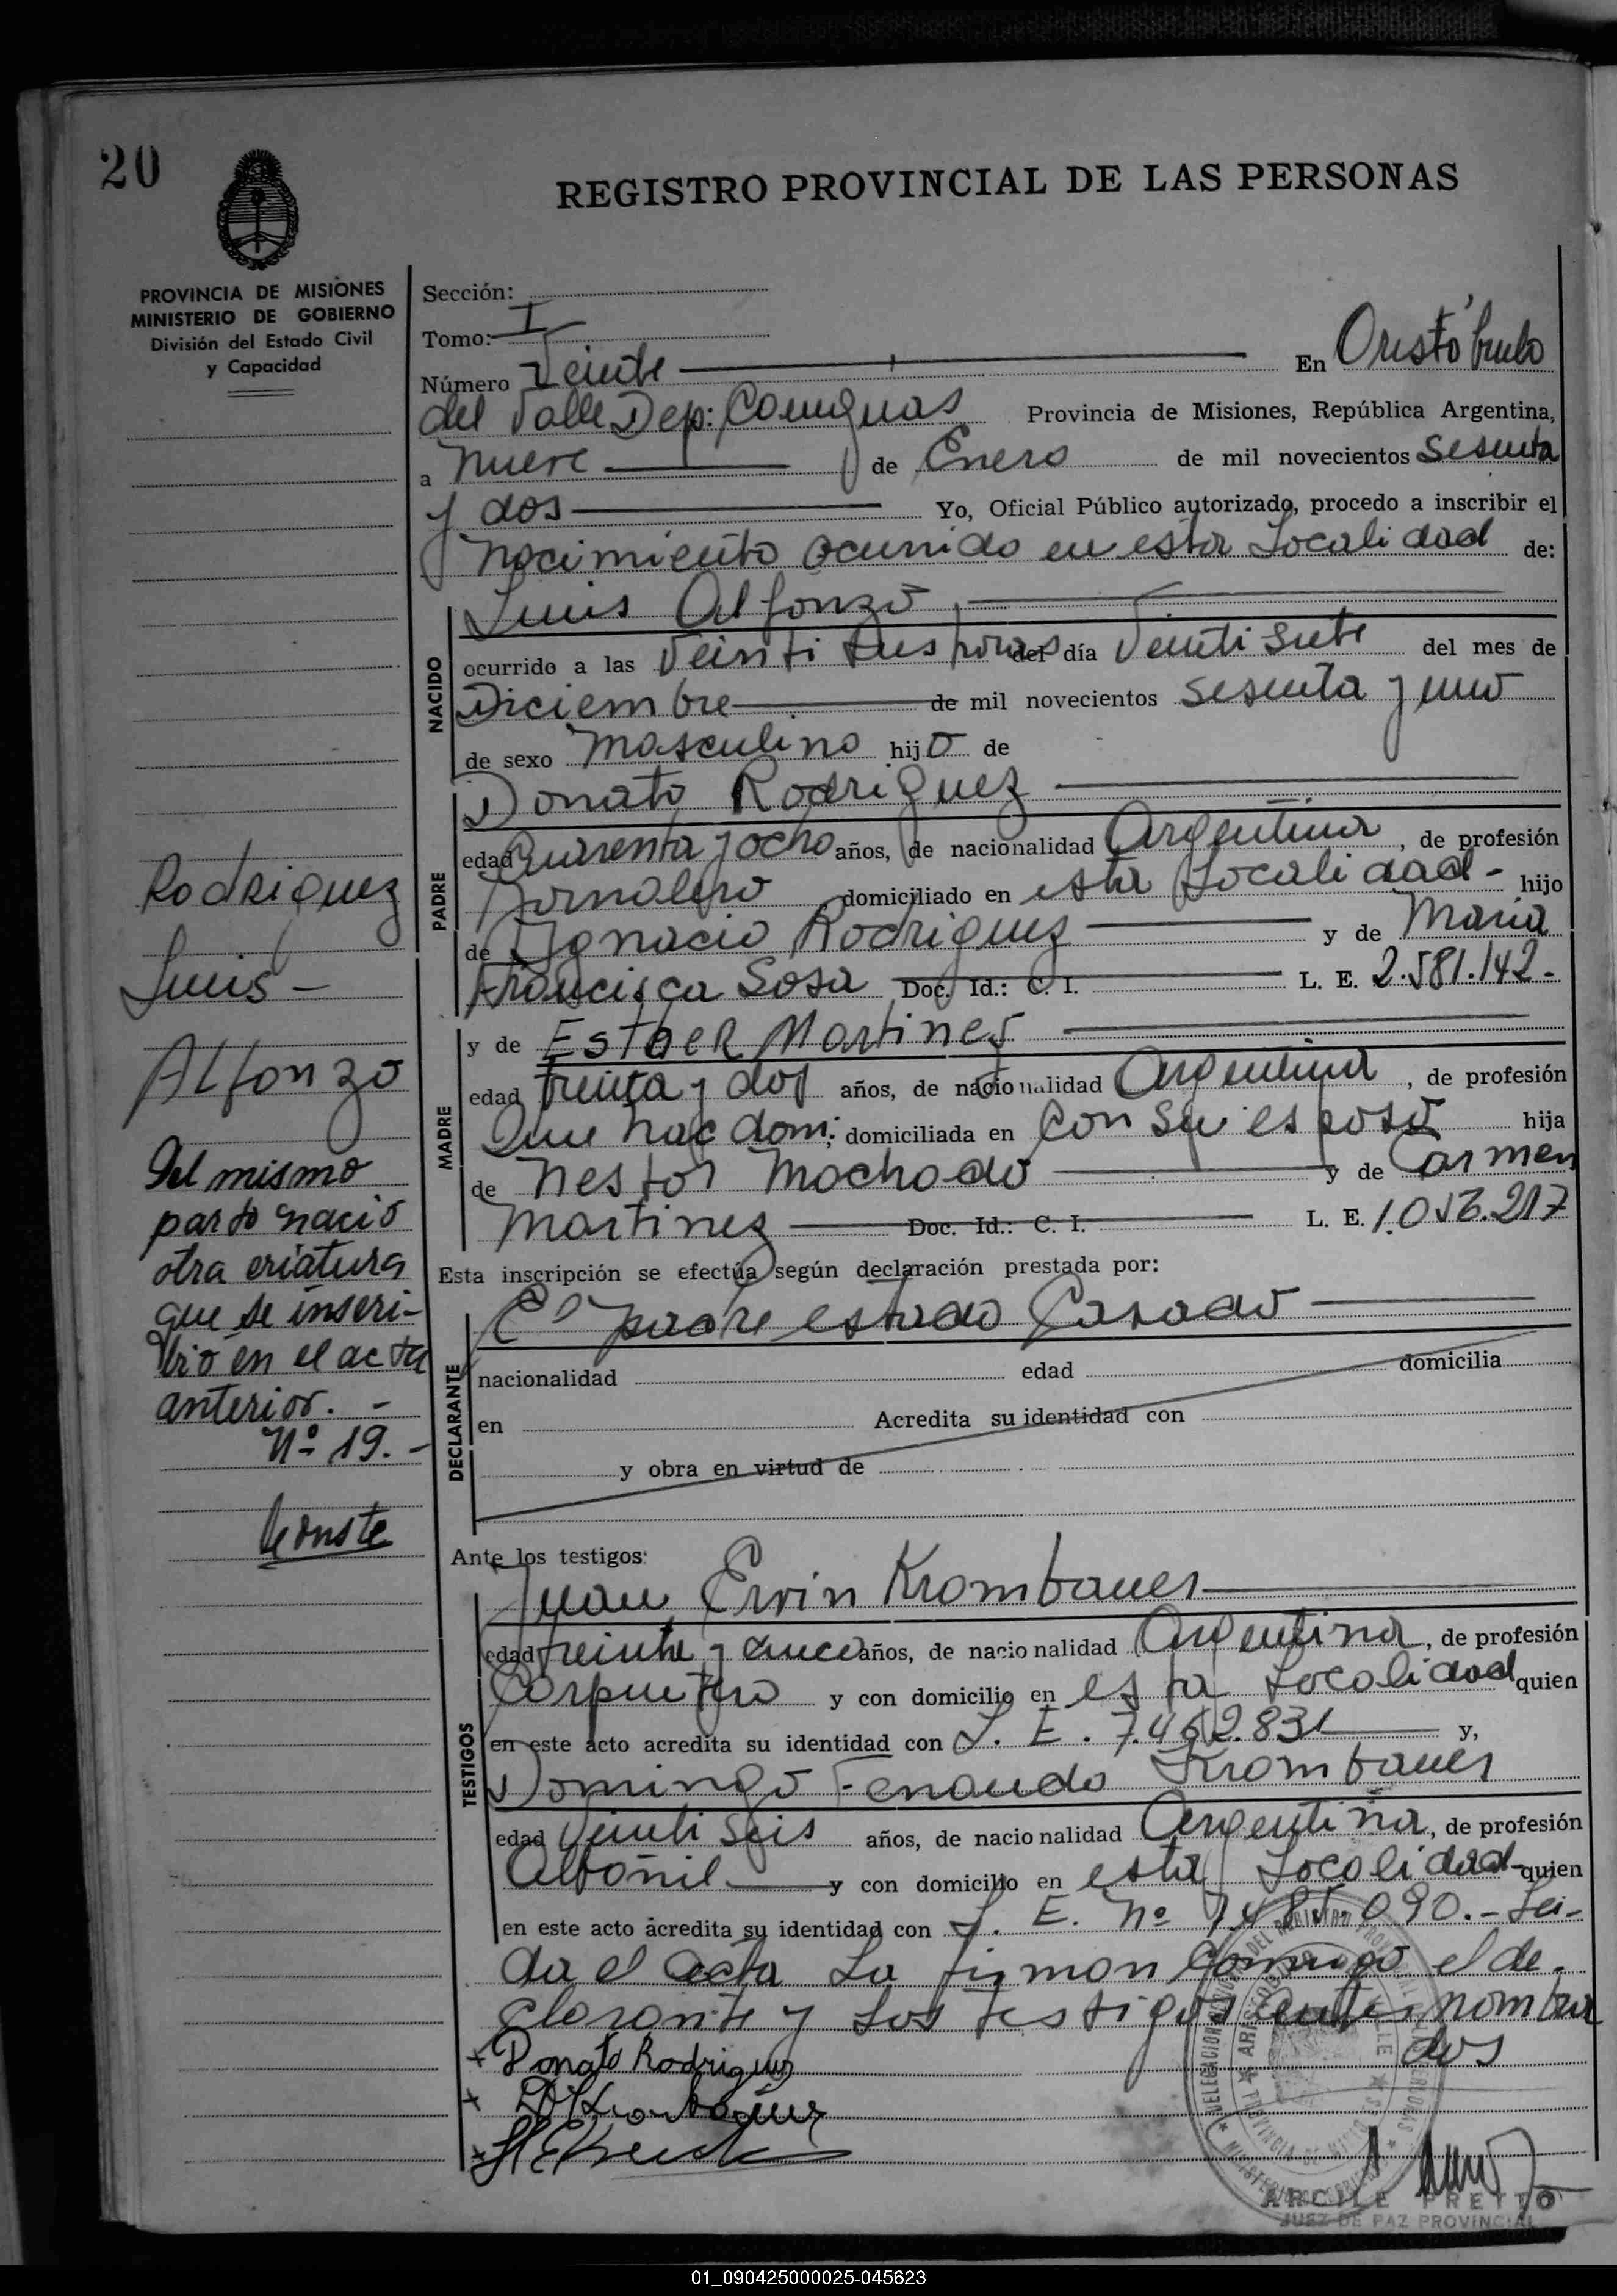 20
REGISTRO PROVINCIAL DE LAS PERSONAS
PROVINCIA DE MISIONES
MINISTERIO DE GOBIERNO
División del Estado Civil
y Capacidad
Sección:
Tomo: I
Número Veinte En Aristóbulo
del Valle Dep: Cainguas Provincia de Misiones, República Argentina,
a nueve de Enero de mil novecientos sesenta
y dos Yo, Oficial Público autorizado, procedo a inscribir el
nacimiento ocurrido en esta Localidad de:
Luis Alfonzo
NACIDO
ocurrido a las Veinti tres horas del día Veinti siete del mes de
Diciembre de mil novecientos sesenta y uno
de sexo masculino hijo de
Donato Rodriguez
PADRE
edad Cuarenta y ocho años, de nacionalidad Argentina, de profesión
Jornalero domiciliado en esta Localidad - hijo
de Ygnacio Rodriguez y de Maria
Francisca Sosa Doc. Id.: C. I. L. E. 2.581.142-
y de Esther Martinez
MADRE
edad treinta y dos años, de nacionalidad Argentina, de profesión
Que hac dom: domiciliada en con su esposo hija
de Nestor Machado y de Carmen
Martinez Doc. Id.: C. I. L. E. 1.056.217
Esta inscripción se efectúa según declaración prestada por:
El padre estado Casado
DECLARANTE
nacionalidad edad domicilia
en Acredita su identidad con
y obra en virtud de
Rodriguez
Luis -
Alfonzo
Del mismo
parto nació
otra criatura
que se inscri-
bió en el acta
anterior. -
Nº 19. -
Conste
Ante los testigos:
Juan Ervin Krombauer
TESTIGOS
edad treinta y cinco años, de nacionalidad Argentina, de profesión
Carpintero y con domicilio en esta Localidad quien
en este acto acredita su identidad con L. E. 7.462.831 y,
Domingo Fernando Krombauer
edad Veinti seis años, de nacionalidad Argentina, de profesión
Albañil y con domicilio en esta Localidad - quien
en este acto acredita su identidad con L. E. Nº 7485.090. - Lei-
da el acta La firman Conmigo el de-
clarante y los testigos antes nombra
dos
Donato Rodriguez
ARCILE PRETTO
JUEZ DE PAZ PROVINCIAL
01_090425000025-045623